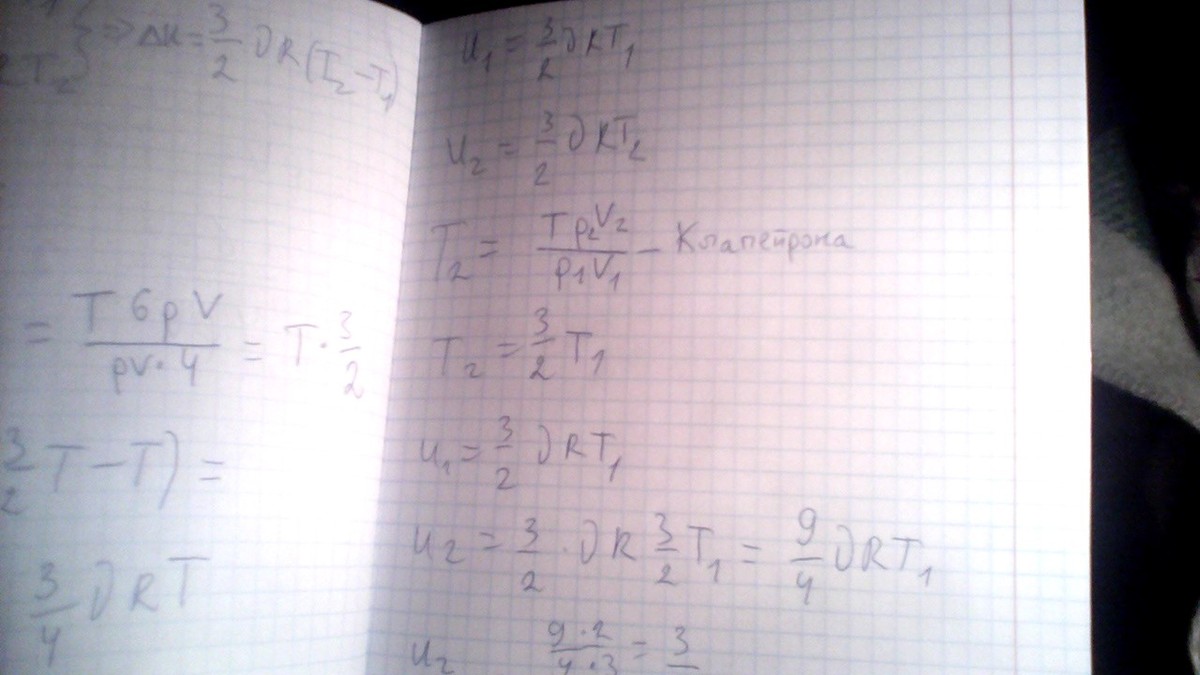 } => Δu = 3/2 ∂R(T₂ - T₁)
T₂
= T 6pV / pV·4 = T · 3/2
3/2 T - T) =
3/4 ∂RT
u₁ = 3/2 ∂RT₁
u₂ = 3/2 ∂RT₂
T₂ = T p₂V₂ / p₁V₁ - Клапейрона
T₂ = 3/2 T₁
u₁ = 3/2 ∂RT₁
u₂ = 3/2 · ∂R 3/2 T₁ = 9/4 ∂RT₁
u₂ 9·2 / 4·3 = 3